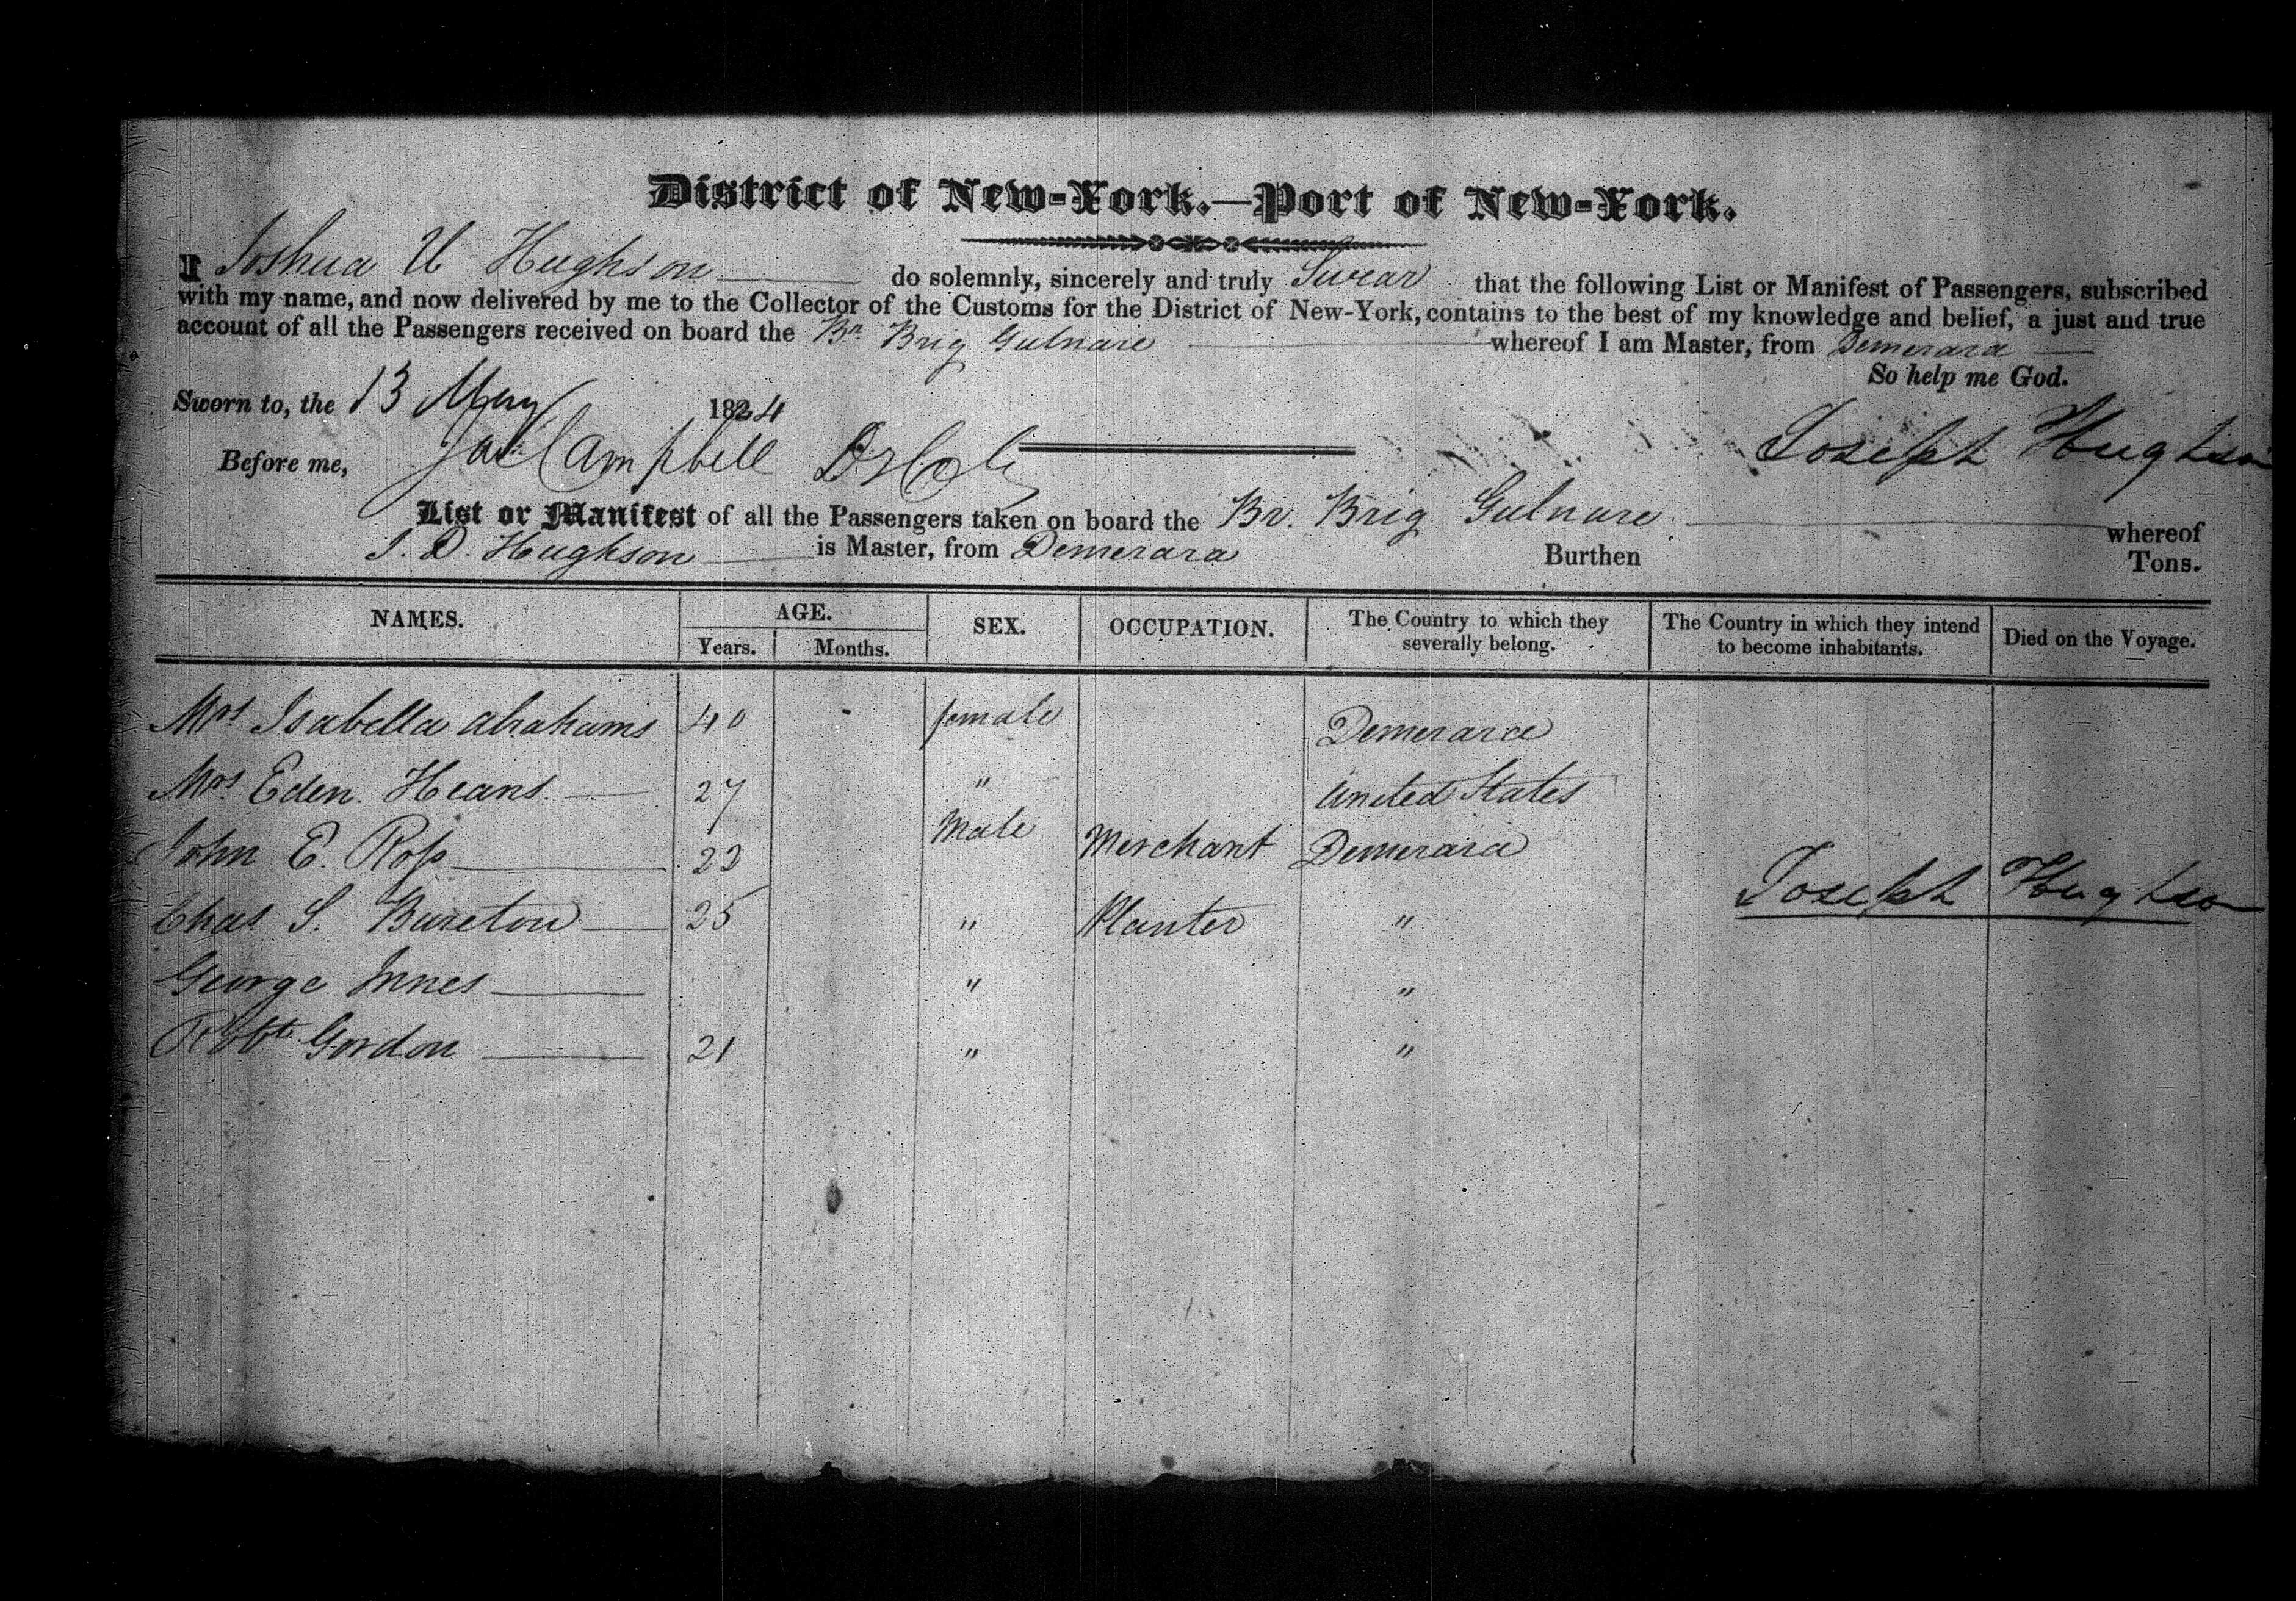 District of New-York.—Port of New-York.
I Joshua U Hughson do solemnly, sincerely and truly Swear that the following List or Manifest of Passengers, subscribed
with my name, and now delivered by me to the Collector of the Customs for the District of New-York, contains to the best of my knowledge and belief, a just and true
account of all the Passengers received on board the Br Brig Gulnare whereof I am Master, from Demerara
So help me God.
Sworn to, the 13 May 1824
Before me, Jas Campbell Joseph Hughson
List or Manifest of all the Passengers taken on board the Br. Brig Gulnare whereof
J. D. Hughson is Master, from Demerara Burthen Tons.
NAMES. AGE. Years. Months. SEX. OCCUPATION. The Country to which they severally belong. The Country in which they intend to become inhabitants. Died on the Voyage.
Mrs Isabella abrahams 40 female Demerara
Mrs Eden. Heans. 27 " United States
John E. Ross 22 Male Merchant Demerara
Chas S. Bureton 25 " Planter "
Joseph Hughson
George Innes " "
Robt. Gordon 21 " "